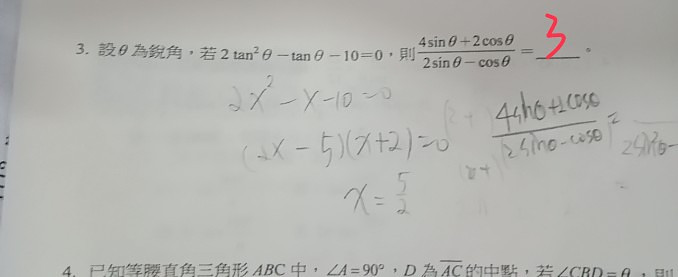 3. 設θ為銳角，若 2 tan²θ－tanθ－10＝0，則 (4 sinθ＋2 cosθ)/(2 sinθ－cosθ) = 3 。
2x² - x - 10 = 0
(2x - 5)(x + 2) = 0
(4 sinθ + 2 cosθ)/(2 sinθ - cosθ) =
x = 5/2
4. 已知等腰直角三角形 ABC 中，∠A＝90°，D 為 AC 的中點，若∠CBD＝θ，則